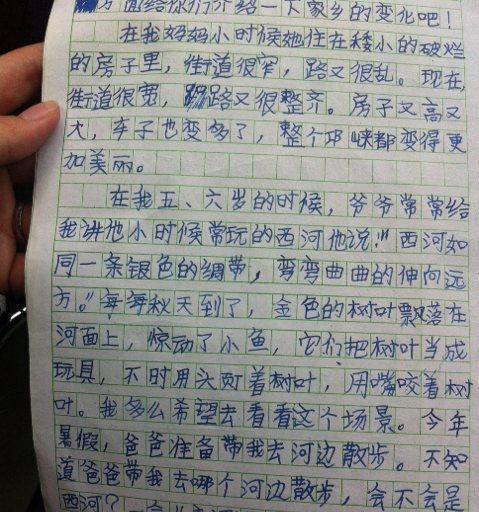 方面给你们介绍一下家乡的变化吧！
在我妈妈小时候她住在矮小的破烂
的房子里，街道很窄，路又很乱。现在，
街道很宽，路又很整齐。房子又高又
大，车子也变多了，整个邛崃都变得更
加美丽。
在我五、六岁的时候，爷爷常常给
我讲他小时候常玩的西河他说："西河如
同一条银色的绸带，弯弯曲曲的伸向远
方。"每每秋天到了，金色的树叶飘落在
河面上，惊动了小鱼，它们把树叶当成
玩具，不时用头顶着树叶，用嘴咬着树
叶。我多么希望去看看这个场景。今年
暑假，爸爸准备带我去河边散步。不知
道爸爸带我去哪个河边散步，会不会是
西河？